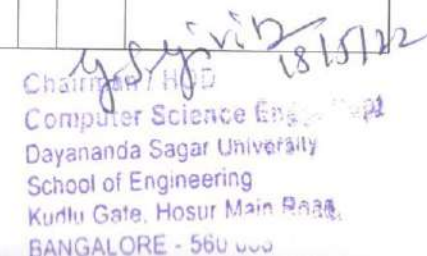 18/5/22
Chairman / HOD
Computer Science Engg. Dept
Dayananda Sagar University
School of Engineering
Kudlu Gate, Hosur Main Road,
BANGALORE - 560